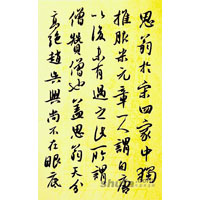 思翁於宋四家中獨
推服米元章一人謂自唐
以後未有過之此所謂
僧贊僧也蓋思翁天分
高絕趙吳興尚不在眼底